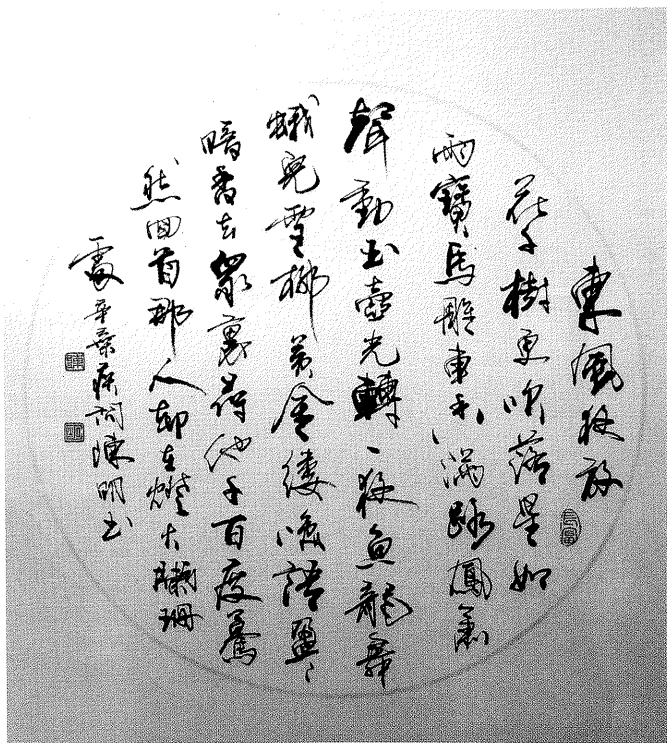 東風夜放
花千樹更吹落星如
雨寶馬雕車香滿路鳳簫
聲動玉壺光轉一夜魚龍舞
蛾兒雪柳黃金縷咲語盈〻
暗香去衆裏尋他千百度驀
然回首那人却在燈火闌珊
處辛棄疾詞陳明書